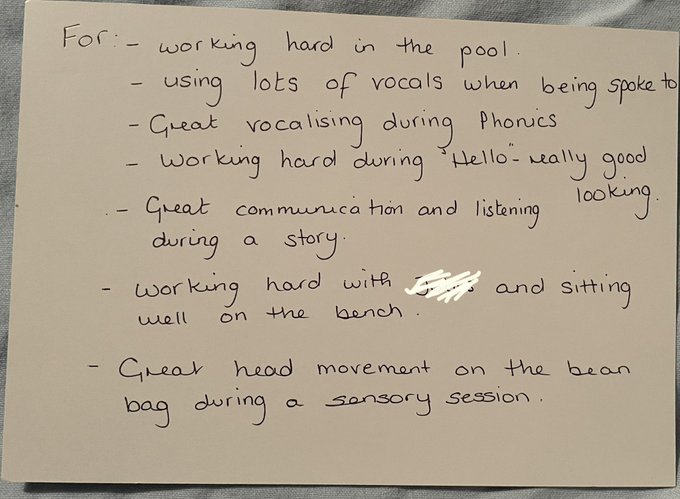 For: - working hard in the pool.
- using lots of vocals when being spoke to
- Great vocalising during Phonics
- Working hard during "Hello" - really good
looking.
- Great communication and listening
during a story.
- Working hard with and sitting
well on the bench.
- Great head movement on the bean
bag during a sensory session.